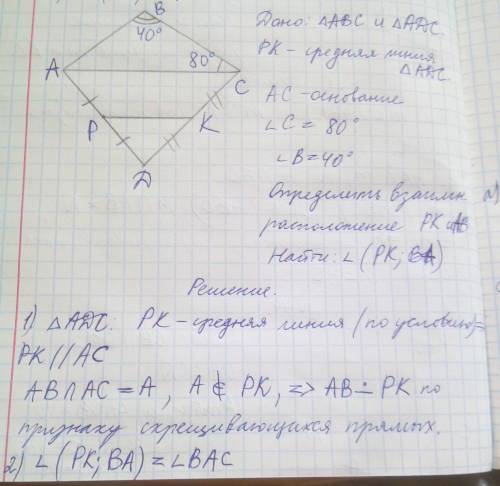 B
40°
80°
A
C
P
K
D
Дано: △ABC и △ADC
PK - средняя линия
△ADC
AC - основание
∠C = 80°
∠B = 40°
Определить взаимн
расположение PK и AB
Найти: ∠(PK; BA)
Решение.
1) △ADC: PK - средняя линия (по условию) =
PK // AC
AB ∩ AC = A, A ∉ PK, => AB ∸ PK по
признаку скрещивающихся прямых.
2) ∠(PK; BA) = ∠BAC